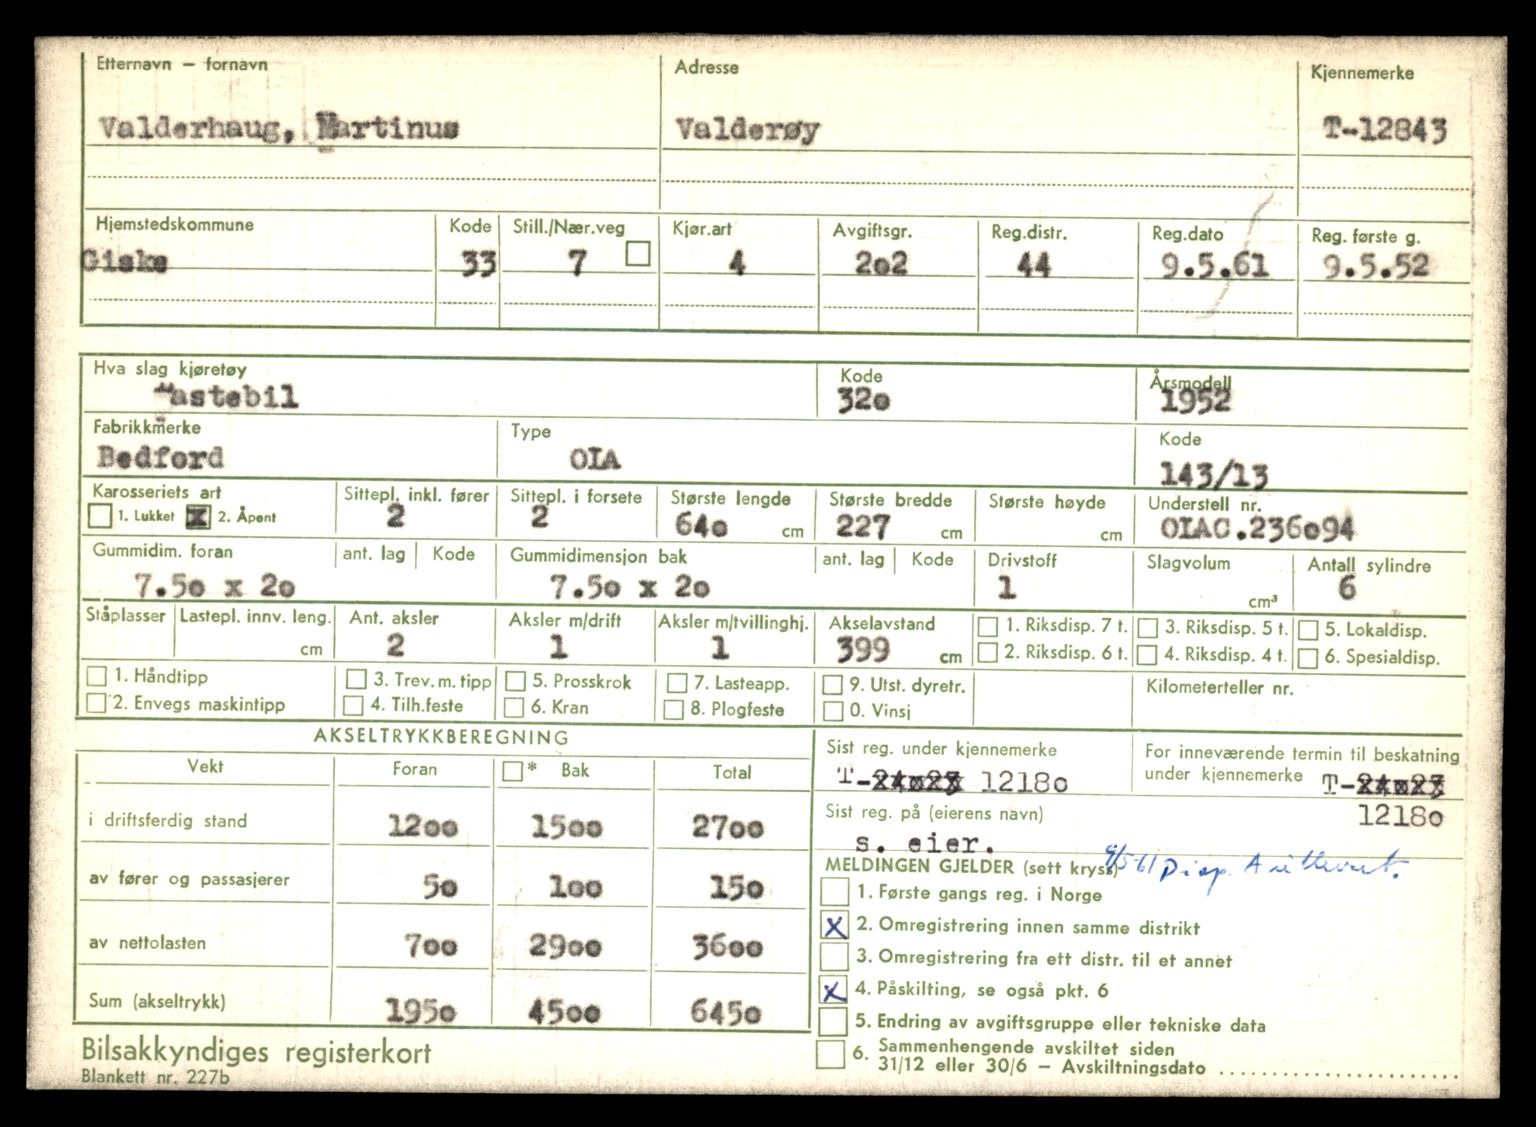 Etternavn – fornavn Adresse Kjennemerke
Valderhaug, Martinus Valderøy T-12843
Hjemstedskommune Kode Still./Nær.veg Kjør.art Avgiftsgr. Reg.distr. Reg.dato Reg. første g.
Giske 33 7 4 202 44 9.5.61 9.5.52
Hva slag kjøretøy Kode Årsmodell
Lastebil 320 1952
Fabrikkmerke Type Kode
Bedford OIA 143/13
Karosseriets art Sittepl. inkl. fører Sittepl. i forsete Største lengde Største bredde Største høyde Understell nr.
1. Lukket X 2. Åpent 2 2 640 cm 227 cm cm OIAC.236094
Gummidim. foran ant. lag Kode Gummidimensjon bak ant. lag Kode Drivstoff Slagvolum Antall sylindre
7.50 x 20 7.50 x 20 1 cm³ 6
Ståplasser Lastepl. innv. leng. Ant. aksler Aksler m/drift Aksler m/tvillinghj. Akselavstand 1. Riksdisp. 7 t. 3. Riksdisp. 5 t. 5. Lokaldisp.
cm 2 1 1 399 cm 2. Riksdisp. 6 t. 4. Riksdisp. 4 t. 6. Spesialdisp.
1. Håndtipp 3. Trev. m. tipp 5. Prosskrok 7. Lasteapp. 9. Utst. dyretr. Kilometerteller nr.
2. Envegs maskintipp 4. Tilh.feste 6. Kran 8. Plogfeste 0. Vinsj
AKSELTRYKKBEREGNING
Vekt Foran * Bak Total
i driftsferdig stand 1200 1500 2700
av fører og passasjerer 50 100 150
av nettolasten 700 2900 3600
Sum (akseltrykk) 1950 4500 6450
Bilsakkyndiges registerkort
Blankett nr. 227b
Sist reg. under kjennemerke For inneværende termin til beskatning
under kjennemerke T-24023
T-24023 12180
Sist reg. på (eierens navn) 12180
s. eier.
MELDINGEN GJELDER (sett kryss) 9/5-61 Disp.
1. Første gangs reg. i Norge
X 2. Omregistrering innen samme distrikt
3. Omregistrering fra ett distr. til et annet
X 4. Påskilting, se også pkt. 6
5. Endring av avgiftsgruppe eller tekniske data
6. Sammenhengende avskiltet siden
31/12 eller 30/6 – Avskiltningsdato ....................